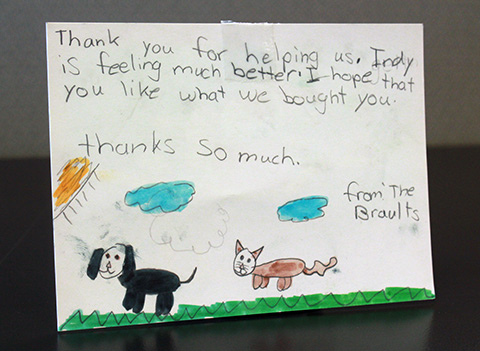 Thank you for helping us. Indy
is feeling much better. I hope that
you like what we bought you.
thanks so much.
from The
Braults